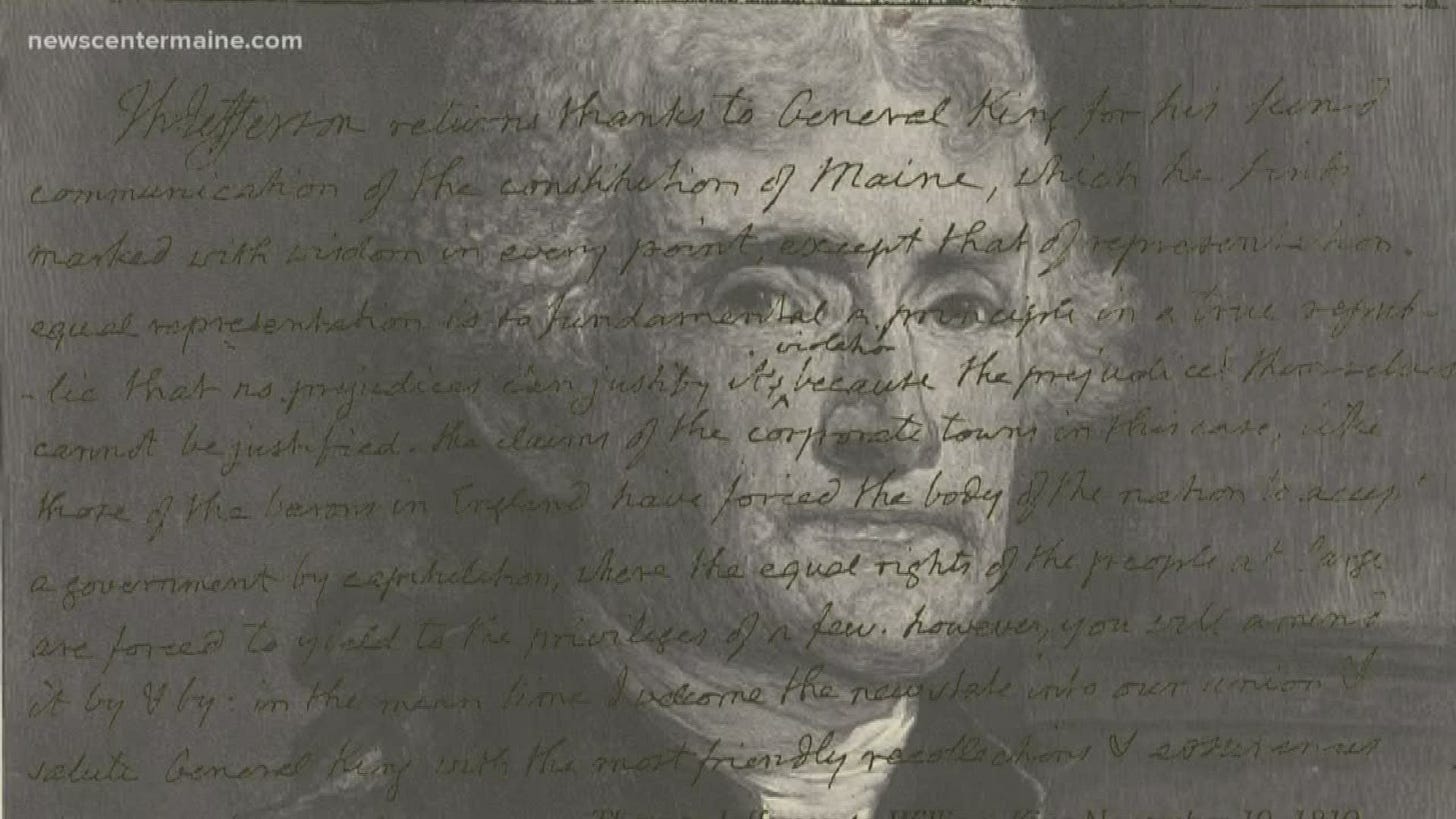 newscentermaine.com
Th Jefferson returns thanks to General King for his kind
communication of the constitution of Maine, which he finds
marked with wisdom in every point, except that of representation.
equal representation is so fundamental a principle in a true repub-
violation
-lic that no prejudices can justify it's ^ because the prejudices themselves
cannot be justified. the claims of the corporate towns in this case, like
those of the barons in England have forced the body of the nation to accept
a government by capitulation, where the equal rights of the people at large
are forced to yield to the privileges of a few. however, you will amend
it by & by: in the mean time I welcome the new state into our union &
salute General King with the most friendly recollections & assurances
November 19, 1819